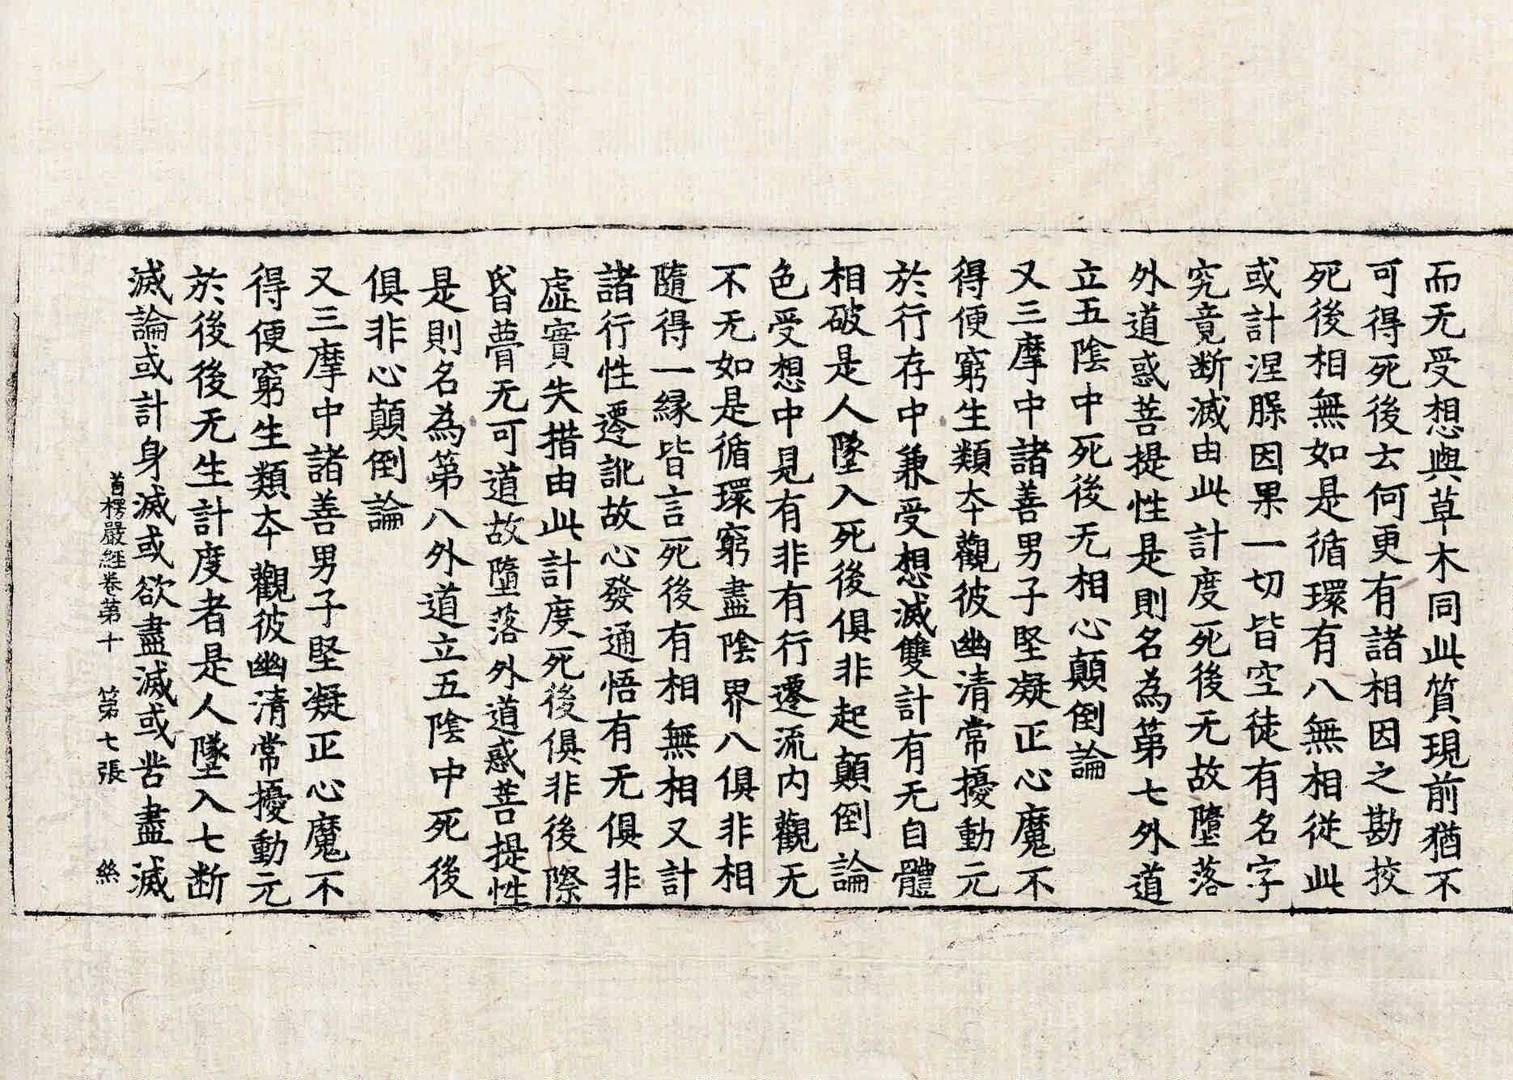 而无受想與草木同此質現前猶不
可得死後云何更有諸相因之勘挍
死後相無如是循環有八無相從此
或計涅䏶因果一切皆空徒有名字
究竟断滅由此計度死後无故墮落
外道惑菩提性是則名為第七外道
立五陰中死後无相心顛倒論
又三摩中諸善男子堅凝正心魔不
得便窮生類夲觀彼幽清常擾動元
於行存中兼受想滅雙計有无自體
相破是人墜入死後俱非起顛倒論
色受想中見有非有行遷流內觀无
不无如是循環窮盡陰界八俱非相
隨得一緣皆言死後有相無相又計
諸行性遷訛故心發通悟有无俱非
虛實失措由此計度死後俱非後際
昏瞢无可道故墮落外道惑菩提性
是則名為第八外道立五陰中死後
俱非心顛倒論
又三摩中諸善男子堅凝正心魔不
得便窮生類夲觀彼幽清常擾動元
於後後无生計度者是人墜入七断
滅論或計身滅或欲盡滅或苦盡滅
首楞嚴經卷第十 第七張 絲